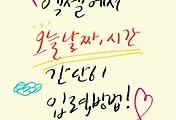 엑셀에서
오늘날짜, 시간
간단히
입력방법!